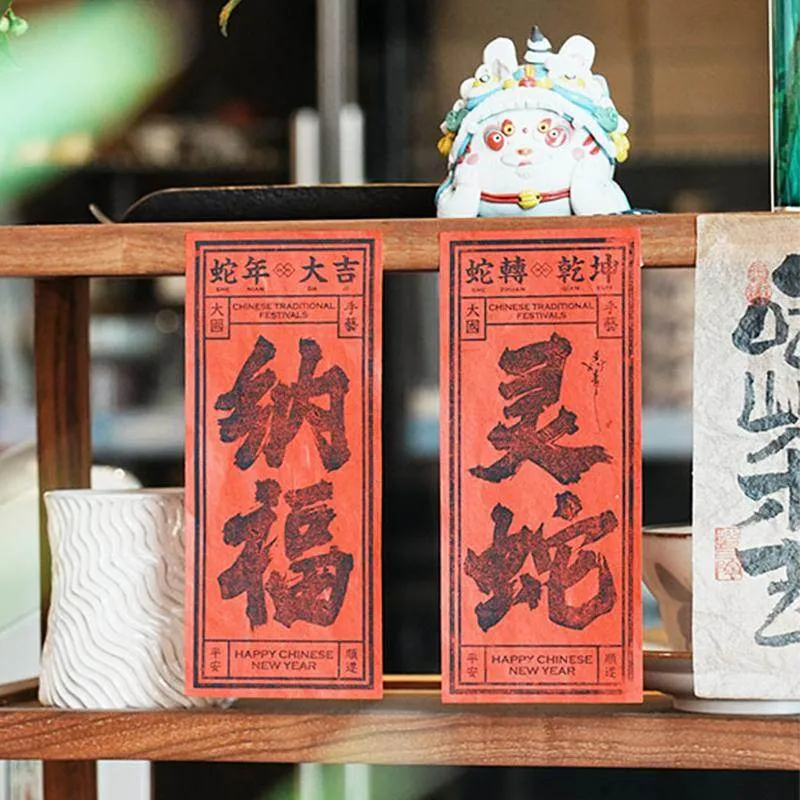 蛇年 大吉
SHE NIAN DA JI
大國
CHINESE TRADITIONAL
FESTIVALS
手藝
納福
平安
HAPPY CHINESE
NEW YEAR
順遂
蛇轉 乾坤
SHE ZHUAN QIAN KUN
大國
CHINESE TRADITIONAL
FESTIVALS
手藝
灵蛇
平安
HAPPY CHINESE
NEW YEAR
順遂